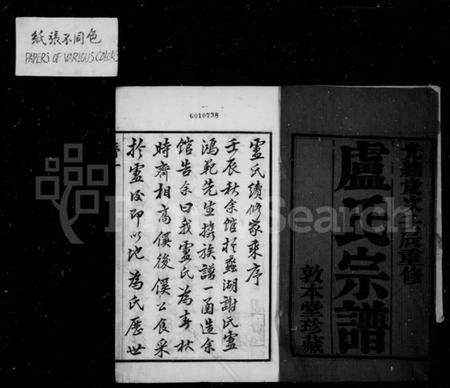 紙張不同色
PAPERS OF VARIOUS COLORS
6010738
光緒歲次壬辰重修
盧氏宗譜
敦本堂珍藏
盧氏續修家乘序
壬辰秋余館於蠡湖謝氏盧
鴻範先生攜族譜一函造余
館告余曰我盧氏為春秋
時齊相高傒後傒公食采
於盧後即以地為氏歷世